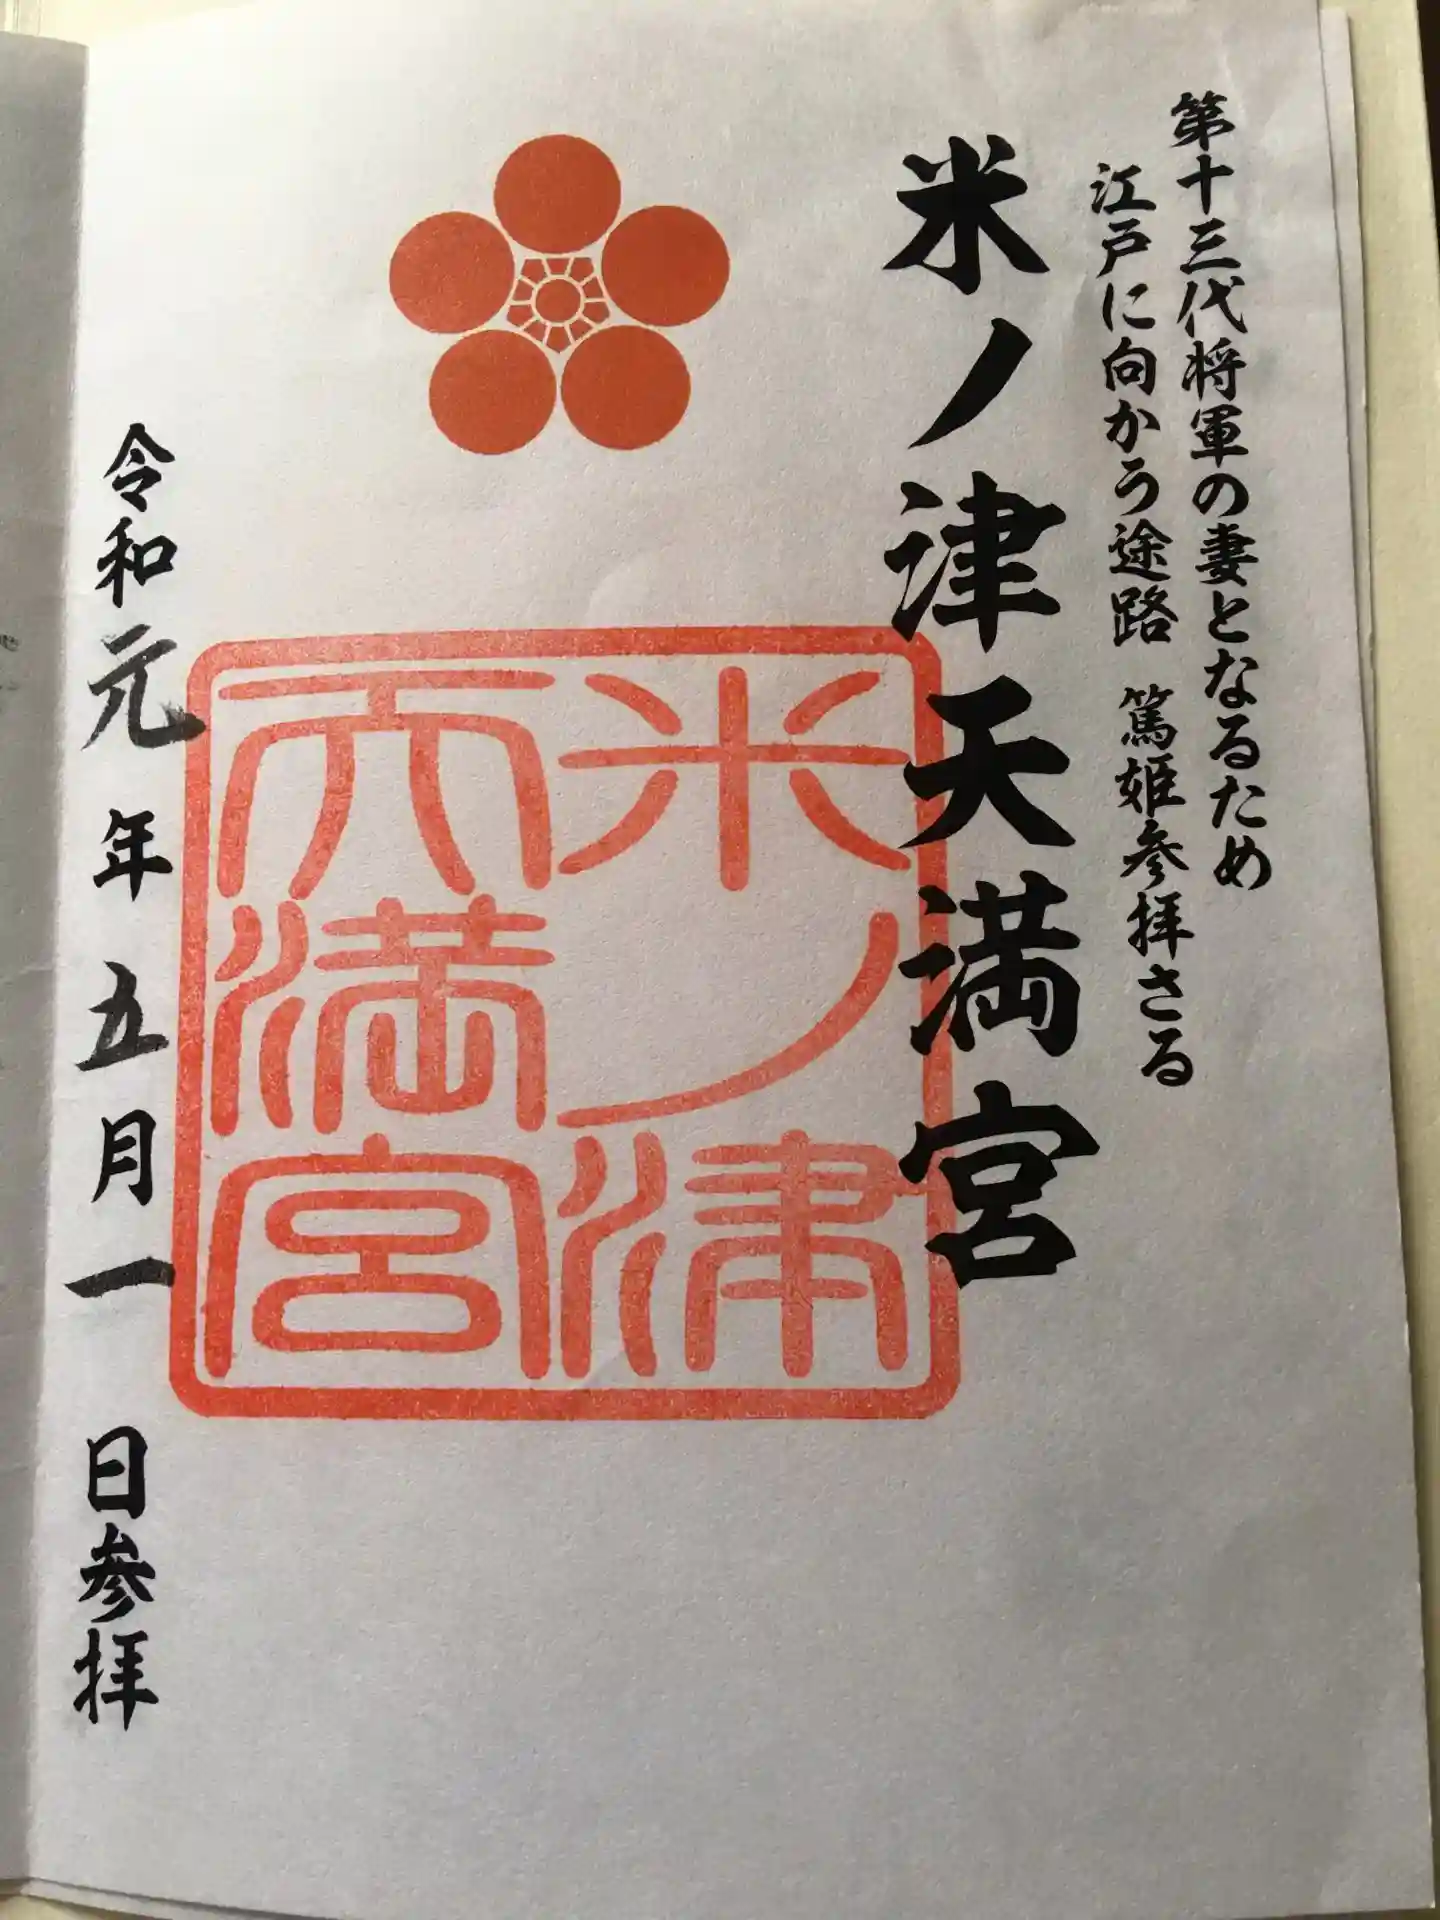 第十三代将軍の妻となるため
江戸に向かう途路 篤姫参拝さる
米ノ津天満宮
米ノ津
天満宮
令和元年五月一日参拝